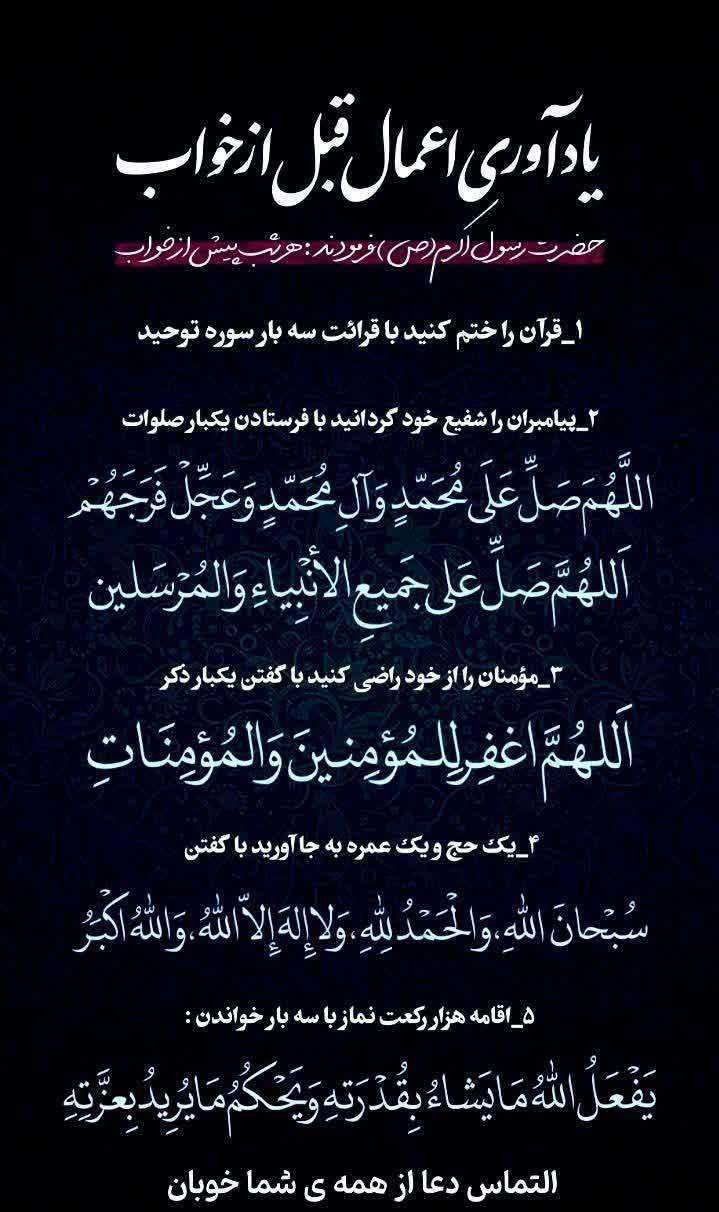 یادآوری اعمال قبل از خواب
حضرت رسول اکرم (ص) فرمودند : هر شب پیش از خواب
۱_قرآن را ختم کنید با قرائت سه بار سوره توحید
۲_پیامبران را شفیع خود گردانید با فرستادن یکبار صلوات
اللَّهُمَ صَلِّ عَلَی مُحَمَّدٍ وَآلِ مُحَمَّدٍ وَعَجِّلْ فَرَجَهُمْ
اَللهُمَّ صَلِّ عَلی جَمیعِ الأنْبِیاءِ وَالمُرْسَلین
۳_مؤمنان را از خود راضی کنید با گفتن یکبار ذکر
اَللهُمَّ اغفِر لِلمُؤمِنینَ وَالمُؤمِنَاتِ
۴_یک حج و یک عمره به جا آورید با گفتن
سُبْحانَ اللهِ، وَالْحَمْدُ لِلهِ، وَلا إِلهَ إِلاّ اللهُ، وَاللهُ اکْبَرُ
۵_اقامه هزار رکعت نماز با سه بار خواندن :
یَفْعَلُ اللهُ مَا یَشاءُ بِقُدْرَتِهِ وَیَحْکُمُ مَا یُرِیدُ بِعِزَّتِهِ
التماس دعا از همه ی شما خوبان